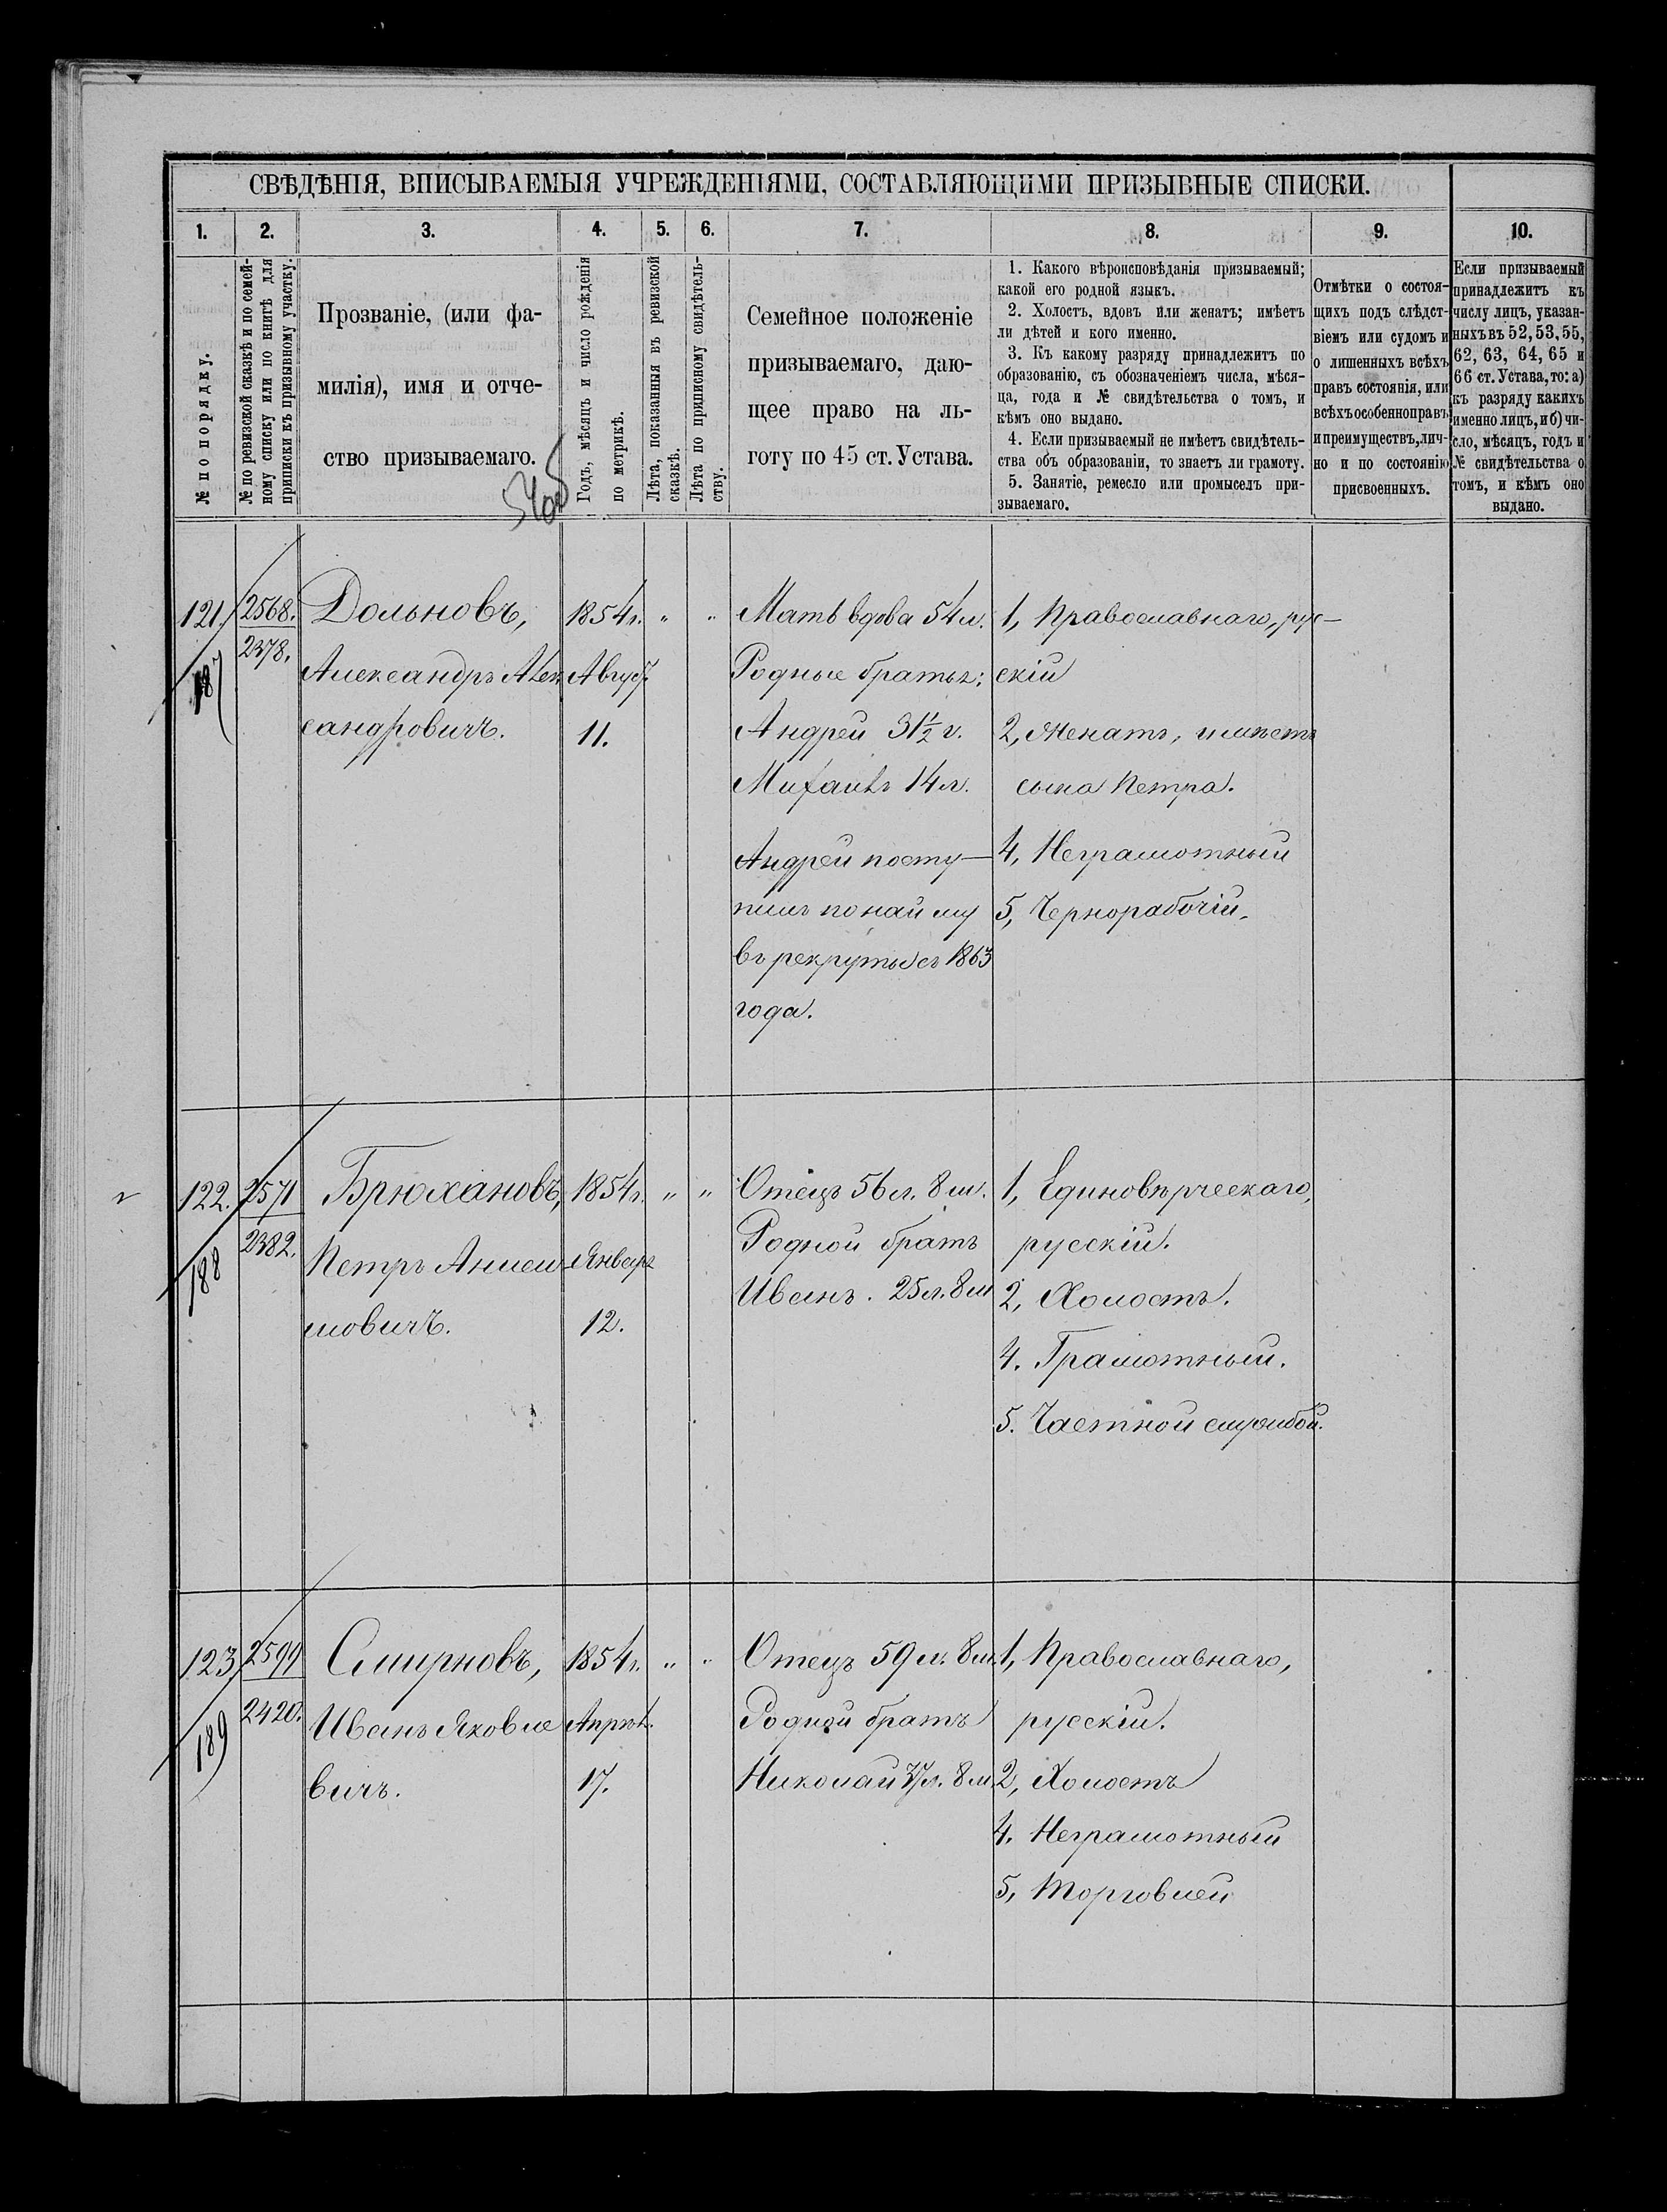 СВѢДѢНІЯ, ВПИСЫВАЕМЫЯ УЧРЕЖДЕНІЯМИ, СОСТАВЛЯЮЩИМИ ПРИЗЫВНЫЕ СПИСКИ.
1.
2.
3.
4.
5.
6.
7.
8.
9.
10.
№ по порядку.
№ по ревизской сказкѣ и по семей-
ному списку или по книгѣ для
приписки къ призывному участку.
Прозваніе, (или фа-
милія), имя и отче-
ство призываемаго.
Годъ, мѣсяцъ и число рожденія
по метрикѣ.
Лѣта, показанныя въ ревизской
сказкѣ.
Лѣта по приписному свидѣтель-
ству.
Семейное положеніе
призываемаго, даю-
щее право на ль-
готу по 45 ст. Устава.
1. Какого вѣроисповѣданія призываемый;
какой его родной языкъ.
2. Холостъ, вдовъ или женатъ; имѣетъ
ли дѣтей и кого именно.
3. Къ какому разряду принадлежитъ по
образованію, съ обозначеніемъ числа, мѣся-
ца, года и № свидѣтельства о томъ, и
кѣмъ оно выдано.
4. Если призываемый не имѣетъ свидѣтель-
ства объ образованіи, то знаетъ ли грамоту.
5. Занятіе, ремесло или промыселъ при-
зываемаго.
Отмѣтки о состоя-
щихъ подъ слѣдст-
віемъ или судомъ и
о лишенныхъ всѣхъ
правъ состоянія, или
всѣхъ особенно правъ
и преимуществъ, лич-
но и по состоянію
присвоенныхъ.
Если призываемый
принадлежитъ къ
числу лицъ, указан-
ныхъ въ 52, 53, 55,
62, 63, 64, 65 и
66 ст. Устава, то: а)
къ разряду какихъ
именно лицъ, и б) чи-
сло, мѣсяцъ, годъ и
№ свидѣтельства о
томъ, и кѣмъ оно
выдано.
121.
187
2568.
2378.
Дольновъ,
Александръ Алек
сандровичъ.
1854 г.
Август.
11.
" "
Мать вдова 54 л.
Родные братья:
Андрей 31½ г.
Михаилъ 14 л.
Андрей посту-
пилъ по найму
въ рекруты съ 1863
года.
1, Православнаго, рус-
скій
2, Женатъ, имѣетъ
сына Петра.
4, Неграмотный
5, Чернорабочій.
122.
188
2571
2382.
Брюхановъ,
Петръ Аниси
мовичъ.
1854 г.
Январь
12.
" "
Отецъ 56 л. 8 м.
Родной братъ
Иванъ. 25 л. 8 м
1, Единовѣрческаго,
русскій.
2, Холостъ.
4. Грамотный.
5. Частной службой.
123
189
2599
2420.
Смирновъ,
Иванъ Яковле
вичъ.
1854 г.
Апрѣл.
17.
" "
Отецъ 59 л. 8 м.
Родной братъ
Николай л. 8 м.
1, Православнаго,
русскій.
2, Холостъ
4. Неграмотный
5, Торговлей